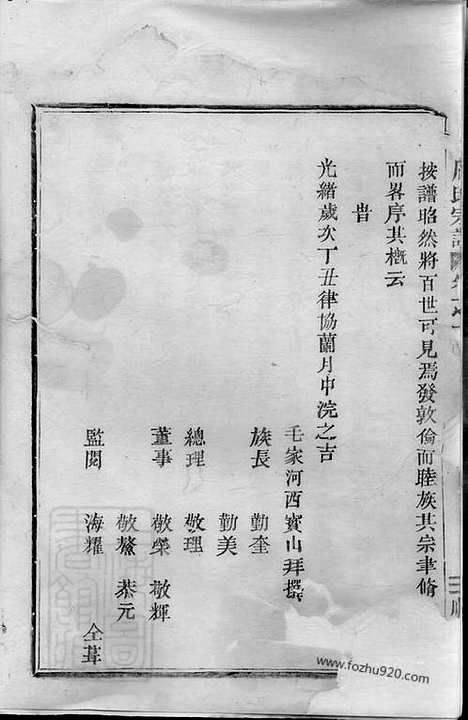 氏宗譜
按譜昭然將百世可見焉發敦倫而睦族其宗聿脩
而畧序其概云
旹
光緒歲次丁丑律協蘭月中浣之吉
毛家河西寳山拜撰
族長 勤奎
勤美
總理 敬理
董事 敬榮 敬輝
敬鰲 恭元
監閱 海耀 仝葺
www.fozhu920.com